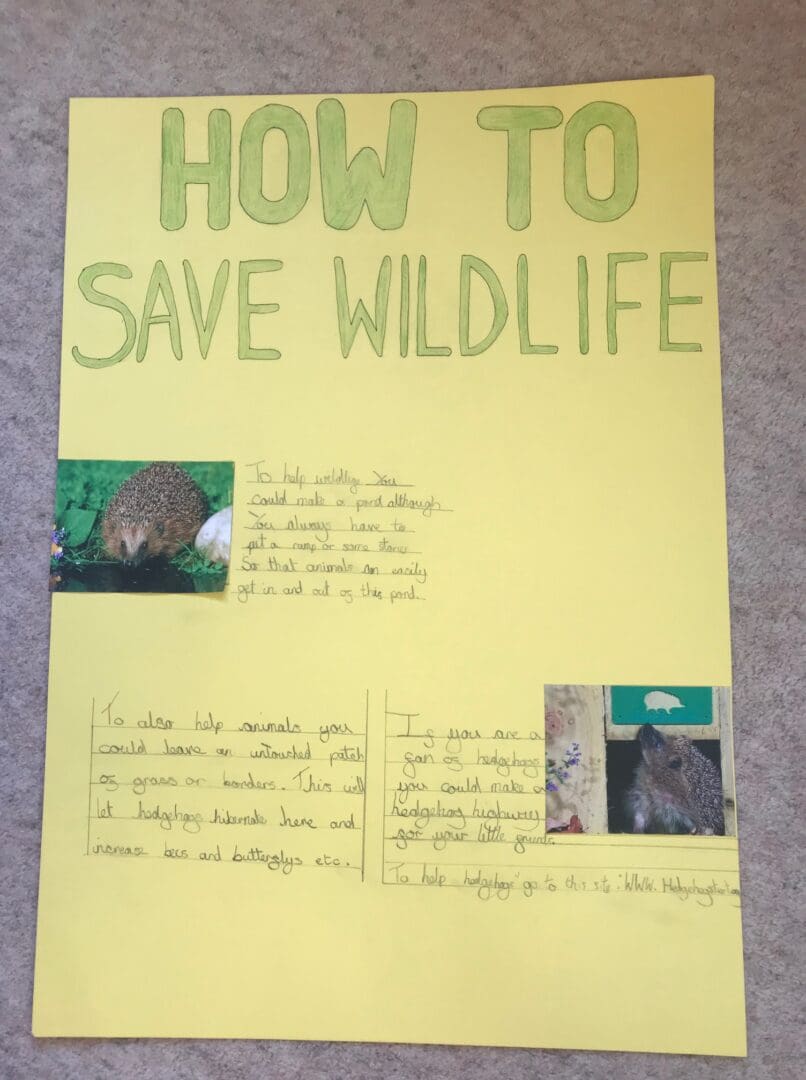 HOW TO
SAVE WILDLIFE
To help wildlife You
could make a pond although
You always have to
put a ramp or some stones
So that animals can easily
get in and out of this pond.
To also help animals you
could leave an untouched patch
of grass or borders. This will
let hedgehogs hibernate here and
increase bees and butterflys etc.
If you are a
fan of hedgehogs
you could make a
hedgehog highway
for your little friends.
To help hedgehogs go to this site: WWW.